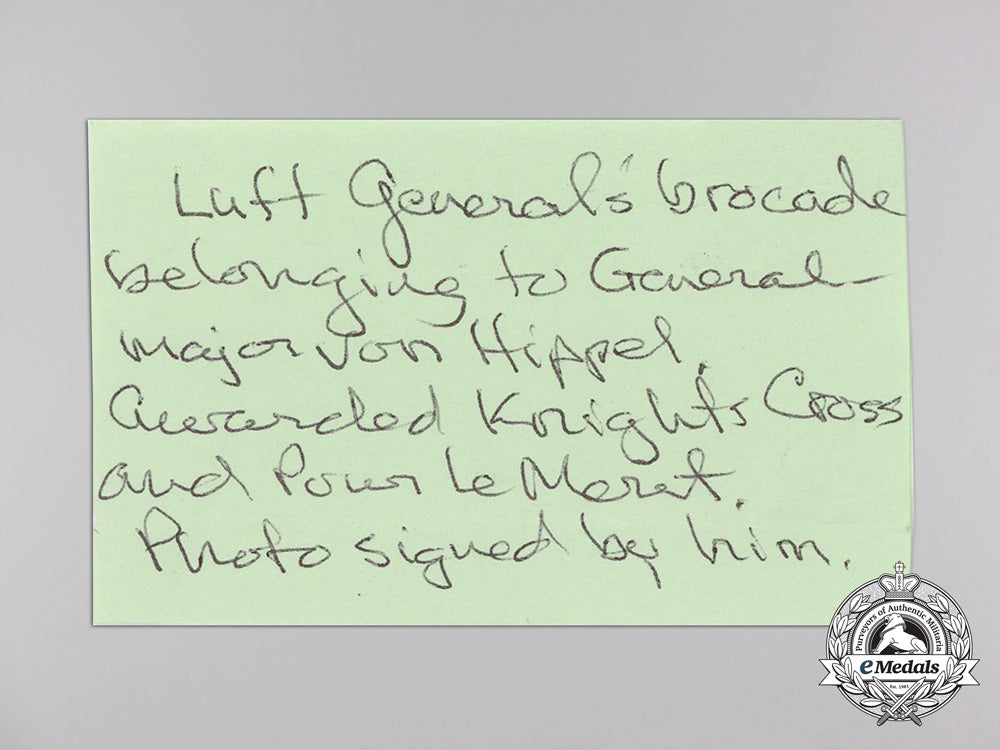 Luft General's brocade
belonging to General
major von Hippel.
Awarded Knights Cross
and Pour le Merit.
Photo signed by him.
Purveyors of Authentic Militaria
eMedals
Est. 1985